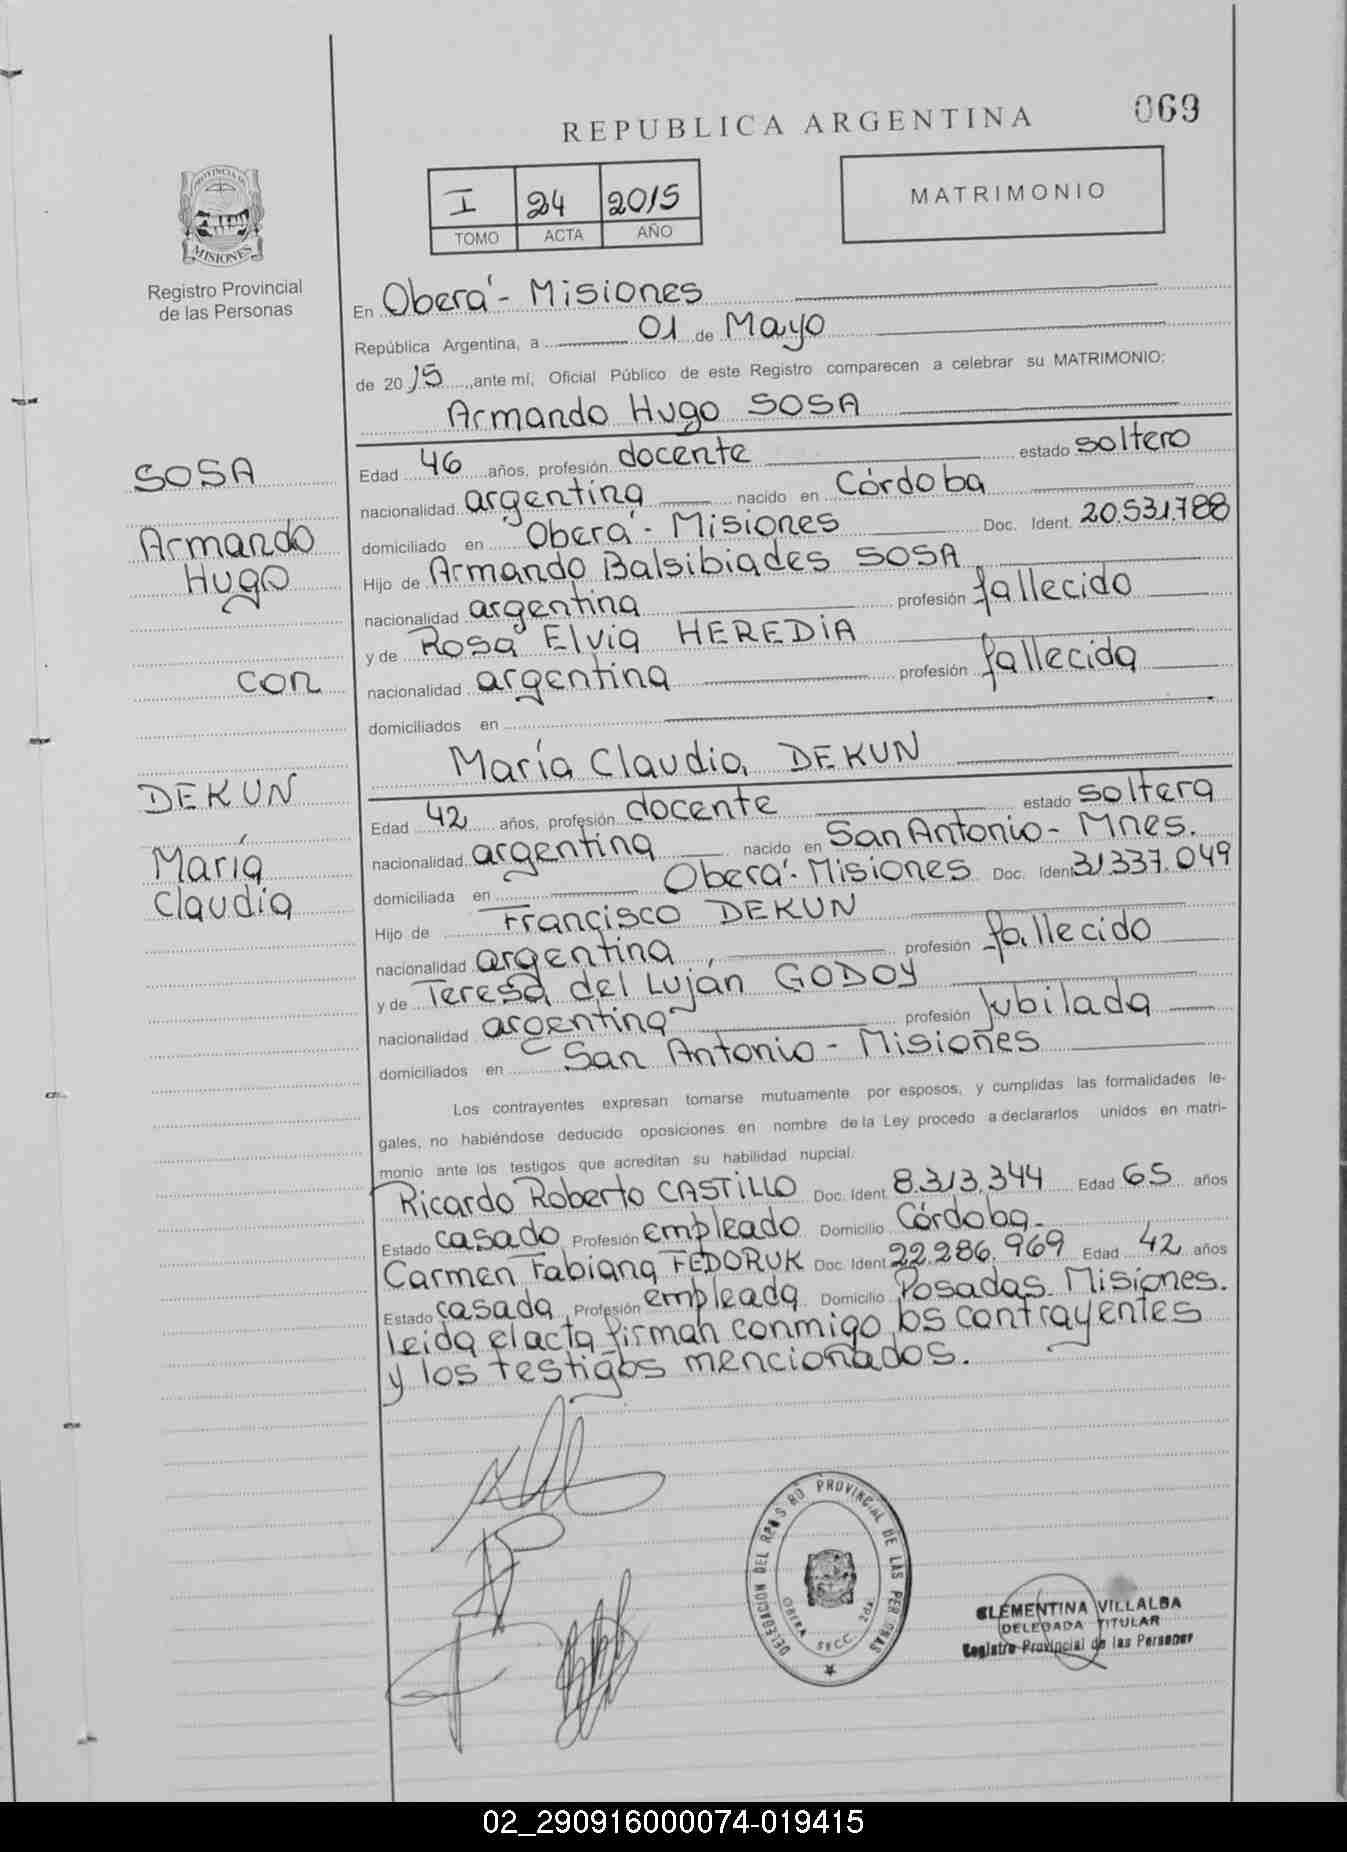 069
REPUBLICA ARGENTINA
I 24 2015
TOMO ACTA AÑO
MATRIMONIO
PROVINCIA DE
MISIONES
Registro Provincial
de las Personas
En Oberá - Misiones
República Argentina, a 01 de Mayo
de 2015, ante mí, Oficial Público de este Registro comparecen a celebrar su MATRIMONIO:
Armando Hugo SOSA
SOSA
Armando
Hugo
con
DEKUN
María
Claudia
Edad 46 años, profesión docente estado soltero
nacionalidad argentina nacido en Córdoba
domiciliado en Oberá - Misiones Doc. Ident. 20.531.788
Hijo de Armando Balsibiades SOSA
nacionalidad argentina profesión fallecido
y de Rosa Elvia HEREDIA
nacionalidad argentina profesión fallecida
domiciliados en
María Claudia DEKUN
Edad 42 años, profesión docente estado soltera
nacionalidad argentina nacido en San Antonio - Mnes.
domiciliada en Oberá - Misiones Doc. Ident 31.337.049
Hijo de Francisco DEKUN
nacionalidad argentina, profesión fallecido
y de Teresa del Luján GODOY
nacionalidad argentina profesión Jubilada
domiciliados en San Antonio - Misiones
Los contrayentes expresan tomarse mutuamente por esposos, y cumplidas las formalidades le-
gales, no habiéndose deducido oposiciones en nombre de la Ley procedo a declararlos unidos en matri-
monio ante los testigos que acreditan su habilidad nupcial.
Ricardo Roberto CASTILLO Doc. Ident. 8.313.344 Edad 65 años
Estado casado Profesión empleado Domicilio Córdoba-
Carmen Fabiana FEDORUK Doc. Ident. 22.286.969 Edad 42 años
Estado casada Profesión empleada Domicilio Posadas Misiones.
leida el acta firman conmigo los contrayentes
y los testigos mencionados.
PROVINCIAL DE LAS
DELEGACION DEL
OBERA SECC. 2da.
CLEMENTINA VILLALBA
DELEGADA TITULAR
Registro Provincial de las Personas
02_290916000074-019415